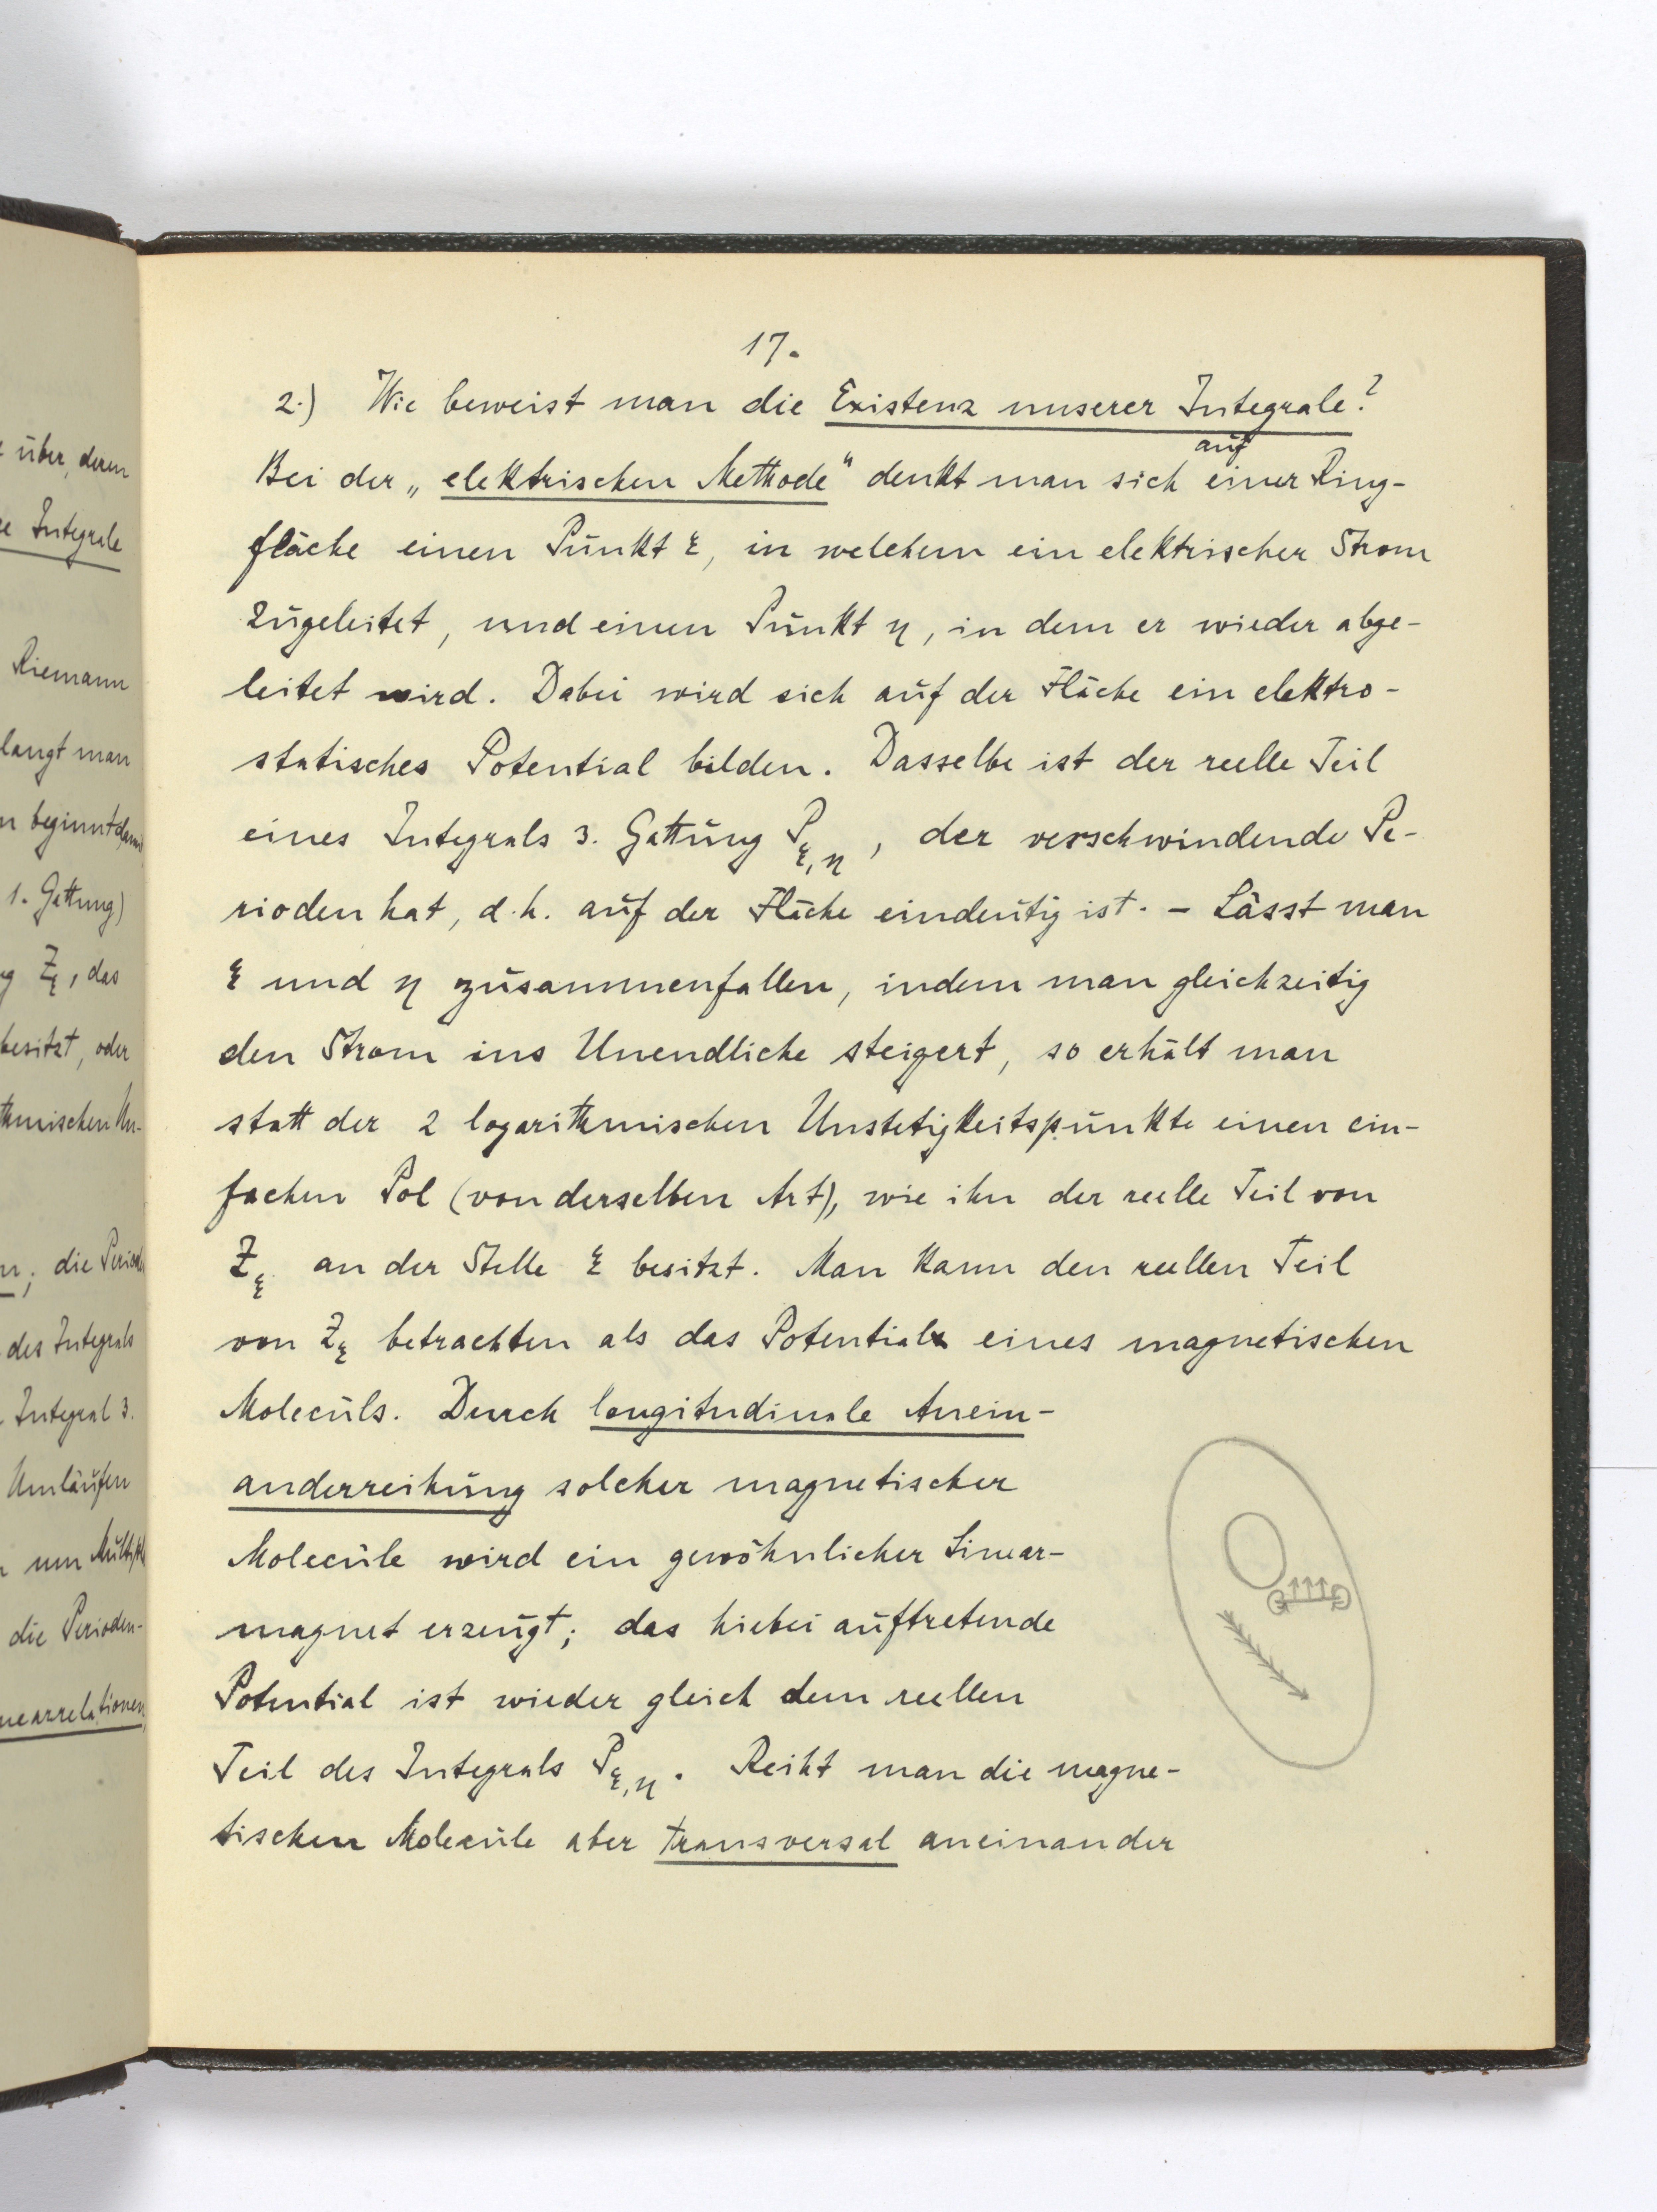 über, deren
Integrale
Riemann
langt man
beginnt
1. Gattung)
Z_ξ, das
besitzt, oder
thmischen Un-
die Period
des Integrals
Integral 3.
Umläufen
um
die Perioden-
nearrelationen,
17.
2.) Wie beweist man die Existenz unserer Integrale?
auf
Bei der „elektrischen Methode" denkt man sich einer Ring-
fläche einen Punkt ξ, in welchem ein elektrischer Strom
zugeleitet, und einen Punkt η, in dem er wieder abge-
leitet wird. Dabei wird sich auf der Fläche ein elektro-
statisches Potential bilden. Dasselbe ist der reelle Teil
eines Integrals 3. Gattung P_ξ,η, der verschwindende Pe-
rioden hat, d.h. auf der Fläche eindeutig ist. – Lässt man
ξ und η zusammenfallen, indem man gleichzeitig
den Strom ins Unendliche steigert, so erhält man
statt der 2 logarithmischen Unstetigkeitspunkte einen ein-
fachen Pol (von derselben Art), wie ihn der reelle Teil von
Z_ξ an der Stelle ξ besitzt. Man kann den reellen Teil
von Z_ξ betrachten als das Potential eines magnetischen
Moleculs. Durch longitudinale Anein-
anderreihung solcher magnetischer
Molecüle wird ein gewöhnlicher Linear-
magnet erzeugt; das hiebei auftretende
Potential ist wieder gleich dem reellen
Teil des Integrals P_ξ,η. Reiht man die magne-
tischen Molecüle aber transversal aneinander